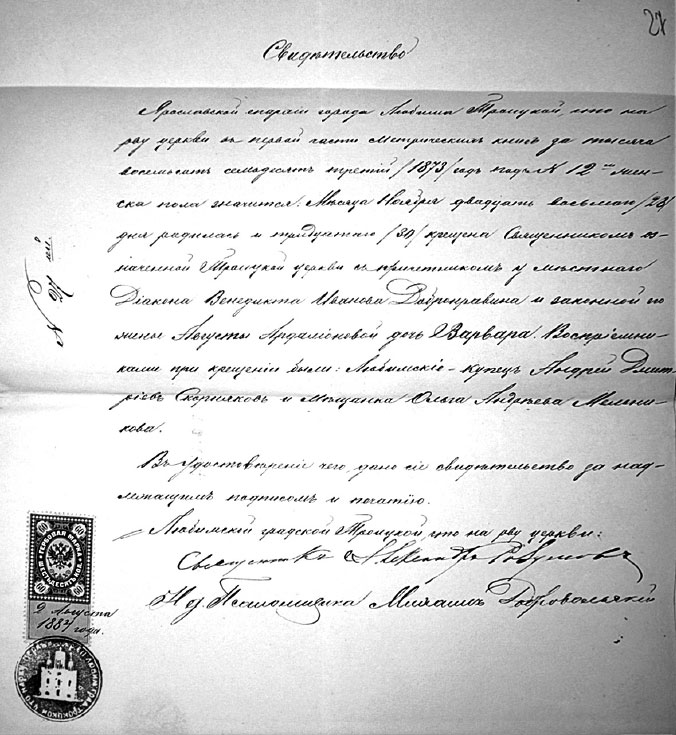 27
Свидѣтельство
Ярославской епархіи города Любима Троицкой, что на
рву церкви въ первой части Метрическихъ книгъ за тысяча
восемьсотъ семьдесятъ третій /1873/ годъ подъ № 12 жен-
ска пола значится: Мѣсяца Ноября двадцать восьмаго /28/
дня родилась и тридцатаго /30/ крещена Священникомъ оз
наченной Троицкой церкви съ причетникомъ у мѣстнаго
Діакона Венедикта Иванова Добронравина и законной его
жены Августы Ардаліоновой дочь Варвара. Воспріемни-
ками при крещеніи были: Любимскіе - купецъ Андрей Дмит-
ріевъ Скорняковъ и мѣщанка Ольга Андреева Мельни-
кова.
Въ удостовѣреніе чего, дано сіе свидѣтельство за над-
лежащимъ подписомъ и печатію.
Любимской градской Троицкой что на рву церкви:
Священникъ Александръ
И. д. Псаломщика Михаилъ Добровольскій
№ 16
60 60
60 60
9 Августа
1887 года.